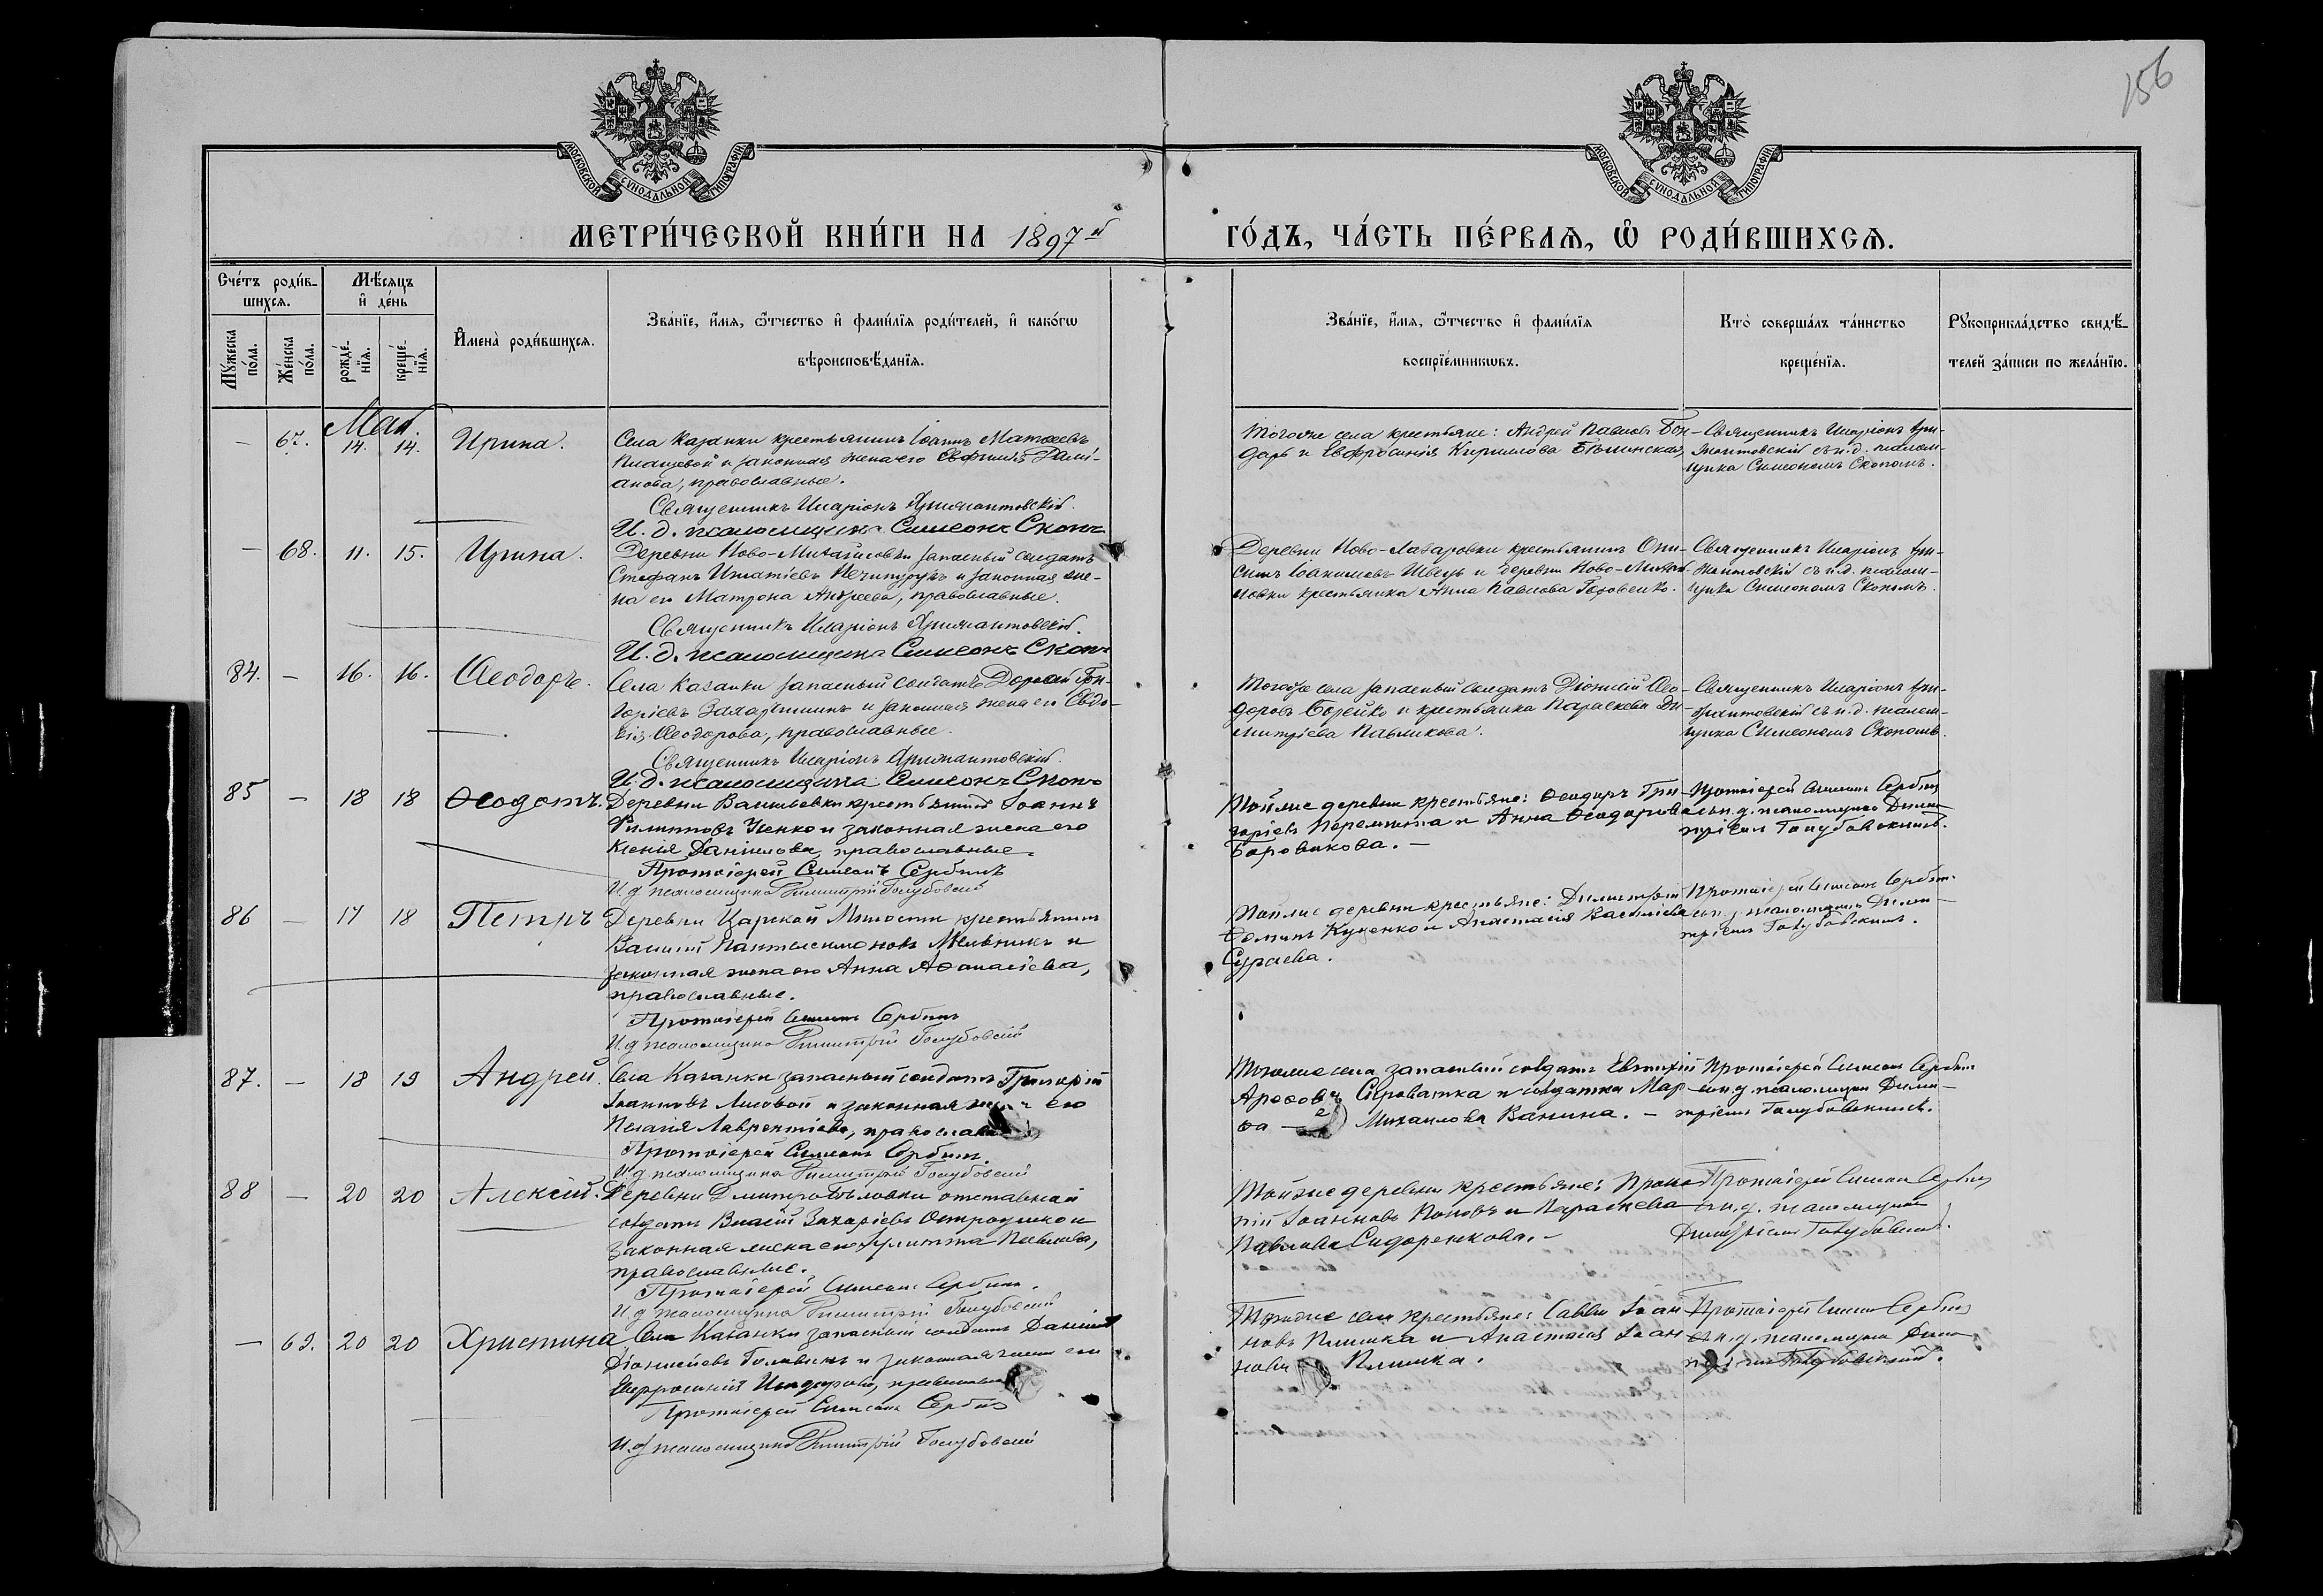 156
МОСКОВСКОЙ СУНОДАЛЬНОЙ ТИПОГРАФІИ
МОСКОВСКОЙ СУНОДАЛЬНОЙ ТИПОГРАФІИ
МЕТРИ́ЧЕСКОЙ КНИ́ГИ НА 1897й
ГО́ДЪ, ЧА́СТЬ ПЕ́РВАѦ, Ѡ҆ РОДИ́ВШИХСѦ.
Сче́тъ роди́в-
шихсѧ.
Мѣ́сѧцъ
и҆ де́нь
Мꙋ́жеска
по́ла.
Же́нска
по́ла.
рожде́-
нїѧ.
креще́-
нїѧ.
И҆мена̀ роди́вшихсѧ.
Зва́нїе, и҆́мѧ, ѻ҆́тчество и҆ фами́лїѧ роди́телей, и҆ како́гѡ
вѣроисповѣ́данїѧ.
Зва́нїе, и҆́мѧ, ѻ҆́тчество и҆ фами́лїѧ
воспрїе́мникѡвъ.
Кто̀ соверша́лъ та́инство
креще́нїѧ.
Рꙋкоприкла́дство свидѣ́-
телей за́писи по жела́нїю.
Май.
— 67. 14. 14. Ирина.
Села Казанки крестьянинъ Іоаннъ Матѳеевъ
и законная жена его Евфимія Даміа-
нова, православные.
Священникъ Иларіонъ
И. д. псаломщика Симеонъ Скопъ
Тогоже села крестьяне: Андрей Павловъ Бон-
дарь и Евфросинія Кириллова
Священникъ Иларіонъ
съ и. д. псалом-
щика Симеономъ Скопомъ.
— 68. 11. 15. Ирина.
Деревни Ново-Михайловки запасный солдатъ
Стефанъ Игнатіевъ Нечипурукъ и законная же-
на его Матрона Андреева, православные.
Священникъ Иларіонъ
И. д. псаломщика Симеонъ Скопъ
Деревни Ново-Лазаровки крестьянинъ Они-
симъ Іоакимовъ Швецъ и деревни Ново-Михай-
ловки крестьянка Анна Павлова
Священникъ Иларіонъ
съ и.д. псалом-
щика Симеономъ Скопомъ.
84. — 16. 16. Ѳеодоръ.
Села Казанки запасный солдатъ Дороѳей Гри-
горіевъ и законная жена его Евдо-
кія Ѳеодорова, православные.
Священникъ Иларіонъ
И. д. псаломщика Симеонъ Скопъ
Тогоже села запасный солдатъ Діонисій Ѳео-
доровъ Борейко и крестьянка Параскева Ди-
митріева Павликова.
Священникъ Иларіонъ
съ и. д. псалом-
щика Симеономъ Скопомъ.
85 — 18 18 Ѳеодотъ.
Деревни Васильевки крестьянинъ Іоаннъ
Филипповъ и законная жена его
Ксенія Даніилова, православные.
Протоіерей Симеонъ Сербинъ
И. д псаломщика Димитрій Голубовскій
Тойже деревни крестьяне: Ѳеодоръ Гри-
горіевъ и Анна Ѳеодорова
Боровикова. —
Протоіерей Симеонъ Сербинъ
съ и. д. псаломщика Дими-
тріемъ Голубовскимъ.
86 — 17 18 Петръ
Деревни Царской Милости крестьянинъ
Василій Пантелеимоновъ Мельникъ и
законная жена его Анна Аѳанасіева,
православные.
Протоіерей Симеонъ Сербинъ
И. д псаломщика Димитрій Голубовскій
Тойже деревни крестьяне: Димитрій
Ѳоминъ Куценко и Анастасія Васильева
Сураева.
Протоіерей Симеонъ Сербинъ
съ и. д. псаломщика Дими-
тріемъ Голубовскимъ.
87. — 18 19 Андрей.
Села Казанки запасный солдатъ Григорій
Іоанновъ Лисовой и законная жена его
Пелагія Лаврентіева, православные
Протоіерей Симеонъ Сербинъ.
И. д. псаломщика Димитрій Голубовскій
Тогоже села запасный солдатъ Евтихій
Сыроватка и солдатка Мар-
ѳа — Михаилова Ванина. —
Протоіерей Симеонъ Сербинъ
съ и. д. псаломщика Дими-
тріемъ Голубовскимъ.
88 — 20 20 Алексій.
Деревни Дмитро-Бѣловки отставной
солдатъ Власій Захаріевъ Остроушко и
законная жена его Іулитта Павлова,
православные.
Протоіерей Симеонъ Сербинъ.
И. д псаломщика Димитрій Голубовскій
Тойже деревни крестьяне: Проко-
пій Іоанновъ Поповъ и Параскева
Павлова Сидоренкова. —
Протоіерей Симеонъ Сербинъ
съ и. д. псаломщика
Димитріемъ Голубовскимъ.
— 69. 20 20 Христина
Села Казанки запасный солдатъ Даніилъ
Діонисіевъ и законная жена его
Евфросинія Исидорова, православные
Протоіерей Симеонъ Сербинъ
И. д псаломщика Димитрій Голубовскій
Тогоже села крестьяне: Савва Іоан-
новъ Климка и Анастасія Іоан-
нова Климка.
Протоіерей Симеонъ Сербинъ
съ и. д. псаломщика Дими-
тріемъ Голубовскимъ.